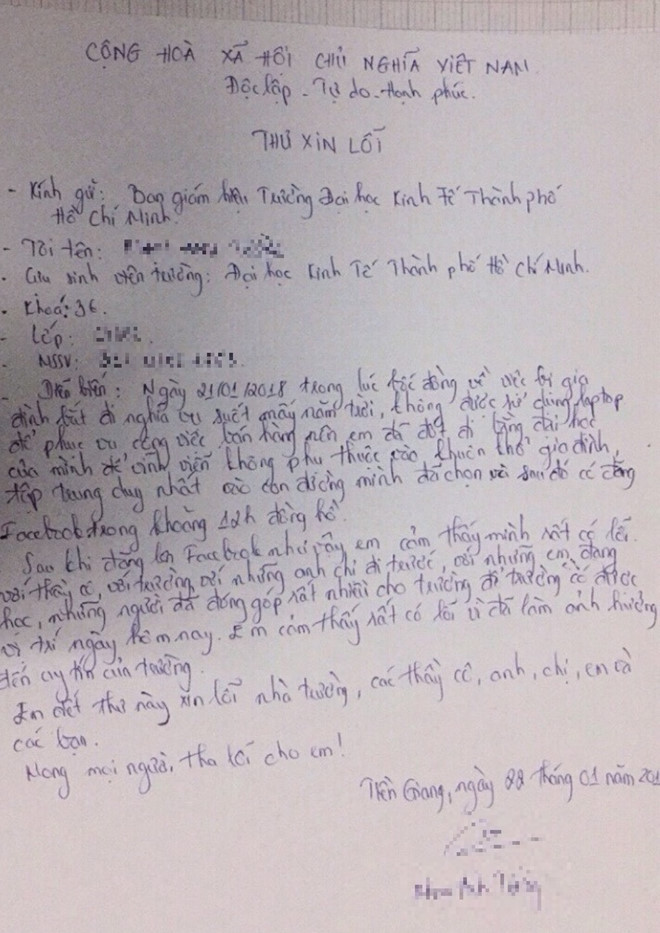 CỘNG HOÀ XÃ HỘI CHỦ NGHĨA VIỆT NAM
Độc lập - Tự do - Hạnh phúc.
THƯ XIN LỖI
- Kính gửi: Ban giám hiệu Trường Đại học Kinh Tế Thành phố
Hồ Chí Minh.
- Tôi tên:
- Cựu sinh viên trường: Đại học Kinh Tế Thành phố Hồ Chí Minh.
- Khoá: 36.
- Lớp:
- MSSV:
- Diễn biến: Ngày 21/01/2018 trong lúc bốc đồng về việc bị gia
đình bắt đi nghĩa vụ suốt mấy năm trời, không được sử dụng laptop
để phục vụ công việc bán hàng nên em đã đốt đi bằng đại học
của mình để vĩnh viễn không phụ thuộc vào khuôn khổ gia đình,
tập trung duy nhất vào con đường mình đã chọn và sau đó có đăng
Facebook trong khoảng 12h đồng hồ.
Sau khi đăng lên Facebook như vậy em cảm thấy mình rất có lỗi
với thầy cô, với trường với những anh chị đi trước, với những em đang
học, những người đã đóng góp rất nhiều cho trường để trường có được
vị trí ngày hôm nay. Em cảm thấy rất có lỗi vì đã làm ảnh hưởng
đến uy tín của trường.
Em viết thư này xin lỗi nhà trường, các thầy cô, anh, chị, em và
các bạn.
Mong mọi người, tha lỗi cho em!
Tiền Giang, ngày 22 tháng 01 năm 201